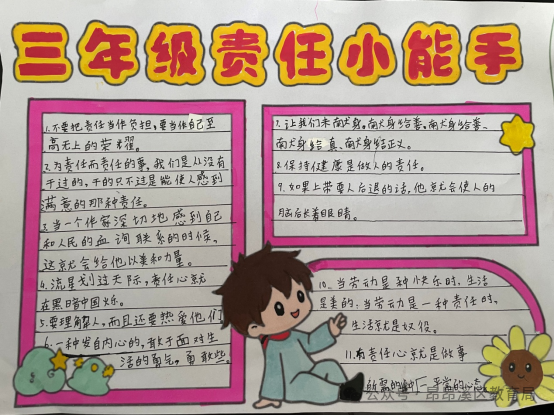 三年级责任小能手
1.不要把责任当作负担,要当作自己至
高无上的荣耀。
2.为责任而责任的事,我们是从没有
干过的,干的只不过是能使人感到
满意的那种责任。
3.当一个作家深切地感到自己
和人民的血 联系的时候,
这就会给他以美和力量。
4.流星划过天际,责任心就
在黑暗中闪烁。
5.要理解人,而且还要热爱他们
6.一种发自内心的,敢于面对生
活的勇气,勇敢些。
7.让我们来献身。献身给善、献身给善、
献身给真、献身给正义。
8.保持健康是做人的责任。
9.如果上帝要人后退的话,他就会使人的
脑后长着眼睛。
10.当劳动是种快乐时,生活
是美的;当劳动是一种责任时,
生活就是奴役。
11.有责任心就是做事
所需的
公众号·昂昂溪区教育局